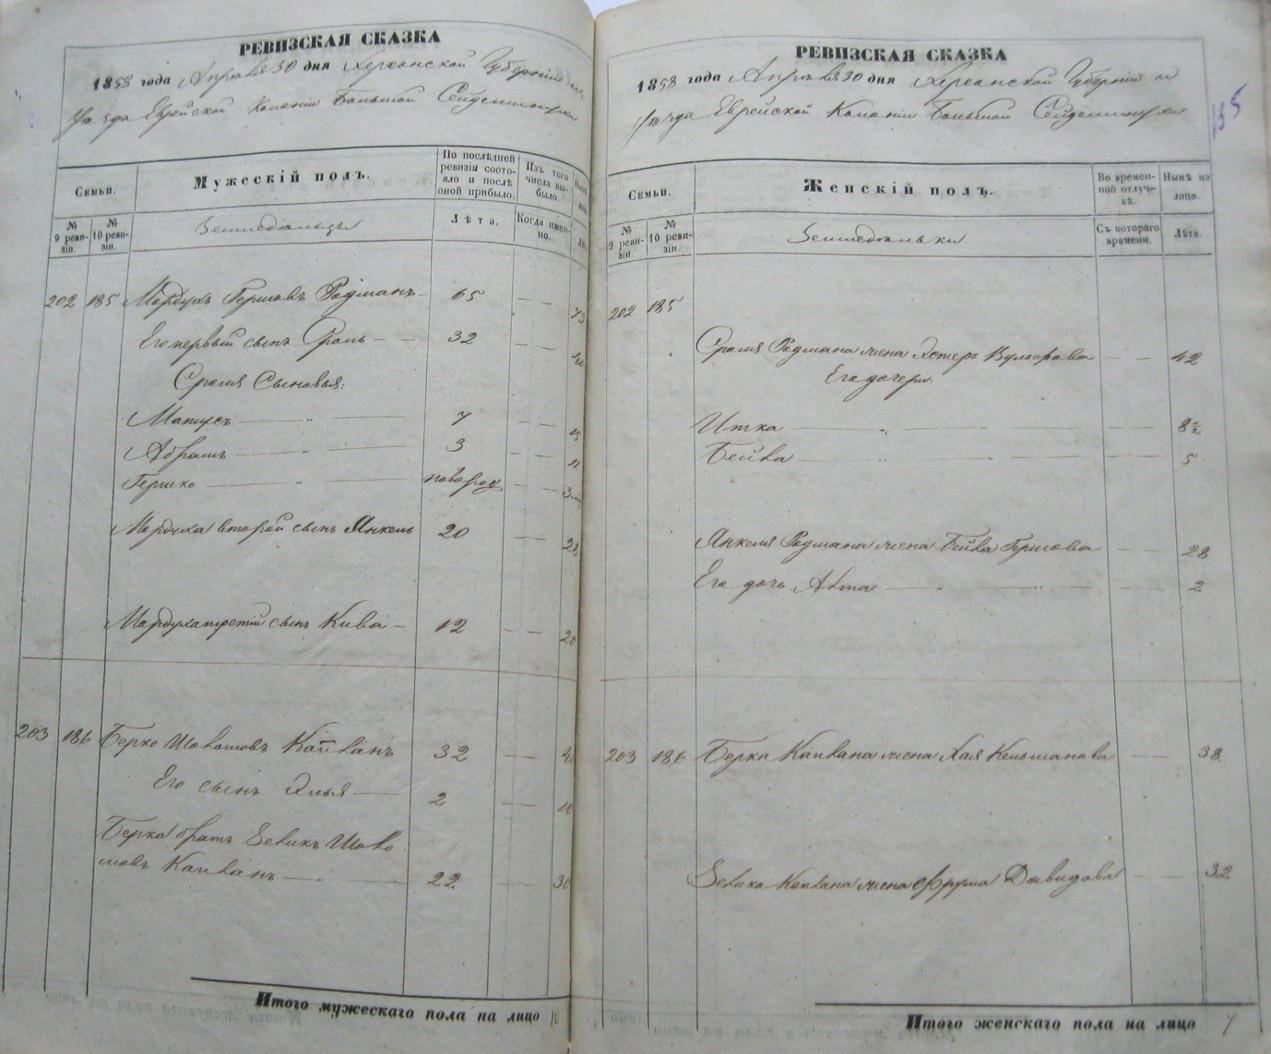 РЕВИЗСКАЯ СКАЗКА
1858 года Апреля 30 дня Херсонской Губернии и
уезда Еврейской Колонии Большой Сейдеминухи
Семьи.
Мужескій полъ.
По послѣдней ревизіи состояло и послѣ оной прибыло.
Изъ того числа выбыло.
№ 9 ревизіи.
№ 10 ревизіи.
Земледельцы
Лѣта.
Когда именно.
202 185 Мордухъ Гершовъ Радманъ 65 73
Его первый сынъ Сроль 32 40
Сроля Сыновья:
Матусъ " 7 15
Абрамъ " 3 11
Гершко " новород
Мордуха второй сынъ Янкель 20 28
Мордуха третій сынъ Кива 12 20
203 186 Берко Шоломовъ Капланъ 32 40
Его сынъ Элья 2 10
Берка братъ Зеликъ Шоло
мовъ Капланъ " 22 30
Итого мужескаго пола на лицо 10
РЕВИЗСКАЯ СКАЗКА
1858 года Апреля 30 дня Херсонской Губерніи и
уезда Еврейской Колоніи Большой Сейдеминухи
135
Семьи.
Женскій полъ.
Во временной отлучкѣ.
Нынѣ на лицо.
№ 9 ревизіи.
№ 10 ревизіи.
Земледельки
Съ котораго времени.
Лѣта.
202 185
Сроля Радмана жена Эстеръ Вульфова 42
Его дочери:
Итка " " 8½
Бейла " " 5
Янкеля Радмана жена Бейла Гершова 28
Его дочь " " 2
203 186 Берка Каплана жена Хая Кельманова 38
Зелика Каплана жена Фрума Давидова 32
Итого женскаго пола на лицо 7